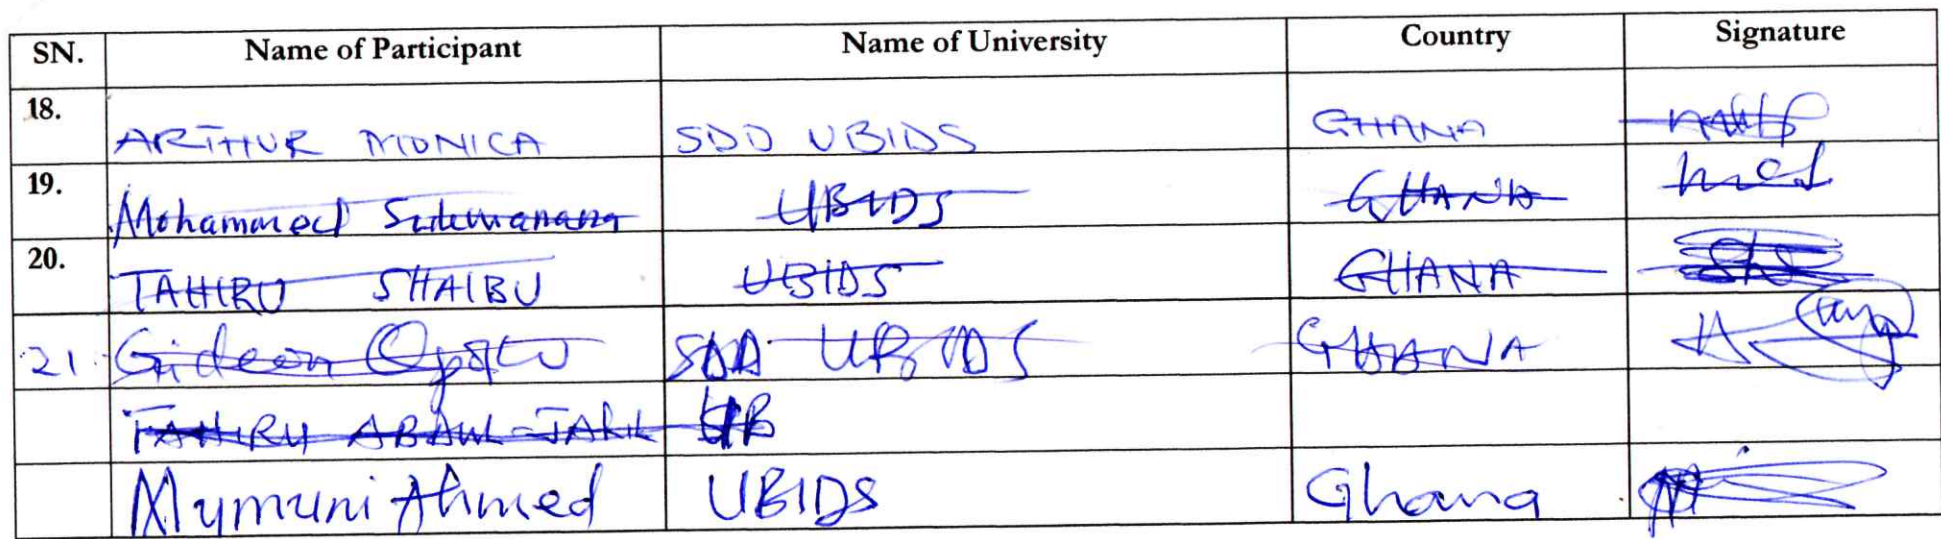 SN. Name of Participant Name of University Country Signature
18. ARTHUR MONICA SDD UBIDS GHANA
19. Mohammed Sulemanana UBIDS GHANA
20. TAHIRU SHAIBU UBIDS GHANA
21. Gideon Opoku SDD UBIDS GHANA
TAHIRU ABDUL-JALIL UB
Mumuni Ahmed UBIDS Ghana